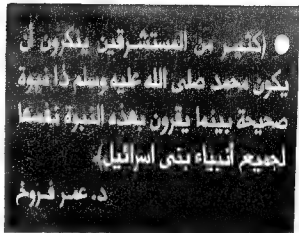 ● (كثير من المستشرقين ينكرون أن
يكون محمد صلى الله عليه وسلم ذا نبوة
صحيحة بينما يقرون بهذه النبوة نفسها
لجميع أنبياء بنى اسرائيل)
د. عمر فروخ